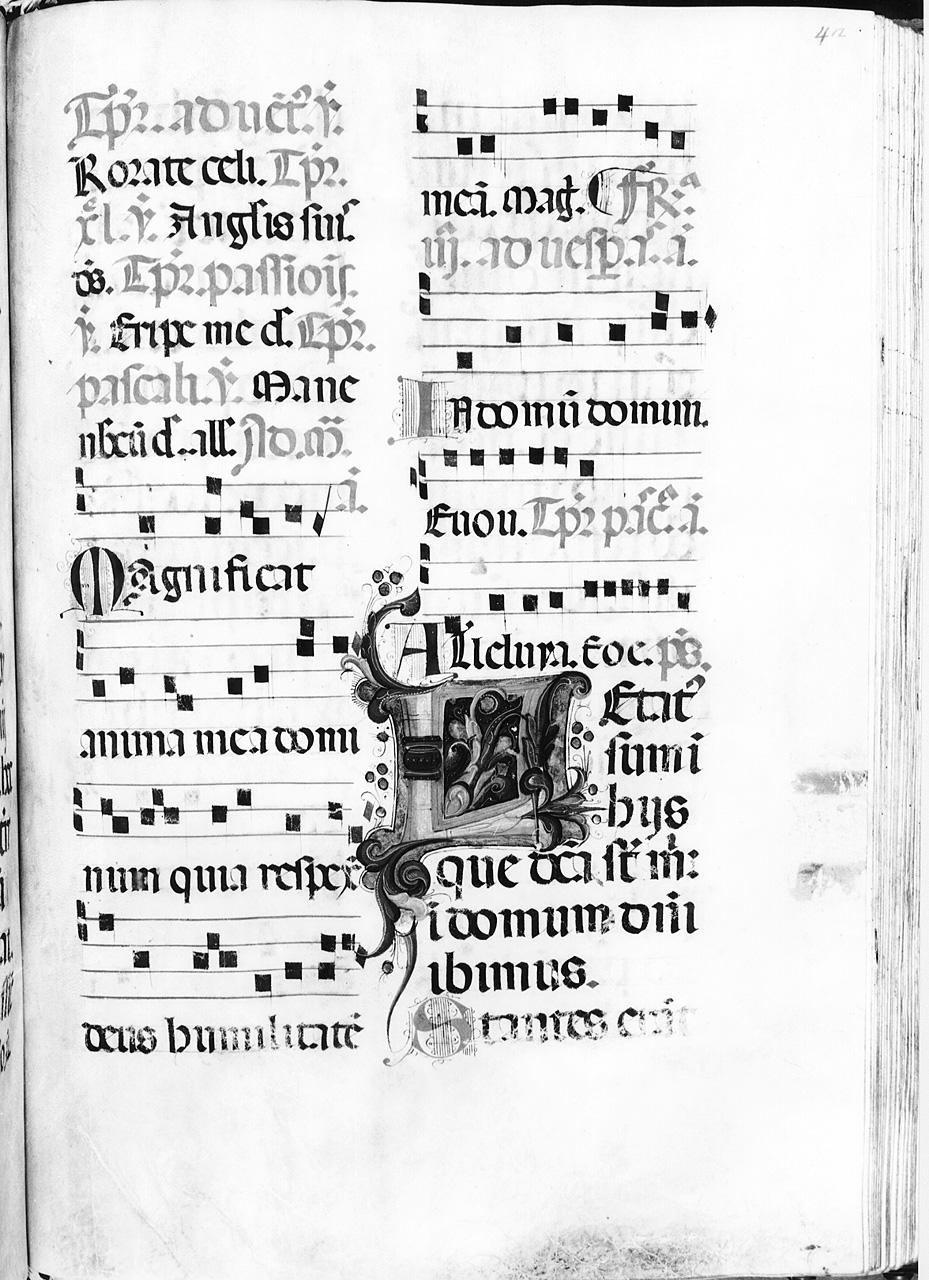 42
Tp̄r. aduēt'. ꝟ.
Rorate celi. Tp̄r.
xl. ꝟ. Angelis suis
ds̄. Tp̄r. passiōis.
ꝟ. Eripe me d̄. Tp̄r.
pascali. ꝟ. Mane
nbcū d̄. all'. Ad. m̄.
ā.
Magnificat
anima mea domi
num quia respex
deus humilitatē
mea. Mag̅. FR. a
iij. ad uesp̄as. ā.
In domū domini.
Euou. Tp̄r pasc̄. ā.
Alleluya. Eoe. ps̄.
Letat'
sum ī
hijs
que dc̄a st̄ m̄:
i domum dn̄i
ibimus.
Stantes erāt